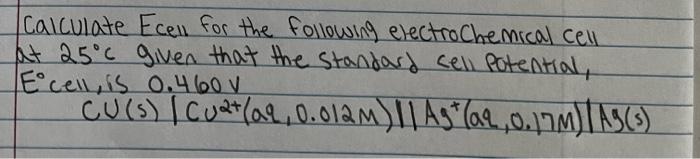 Calculate Ecell for the following electrochemical cell
at 25°C given that the standard cell potential,
E°cell, is 0.460 V
CU(s) | Cu2+(aq, 0.012M) || Ag+(aq, 0.17M) | Ag(s)